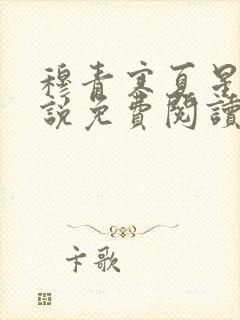 穆青寒夏星
說免費閱讀
卡歌